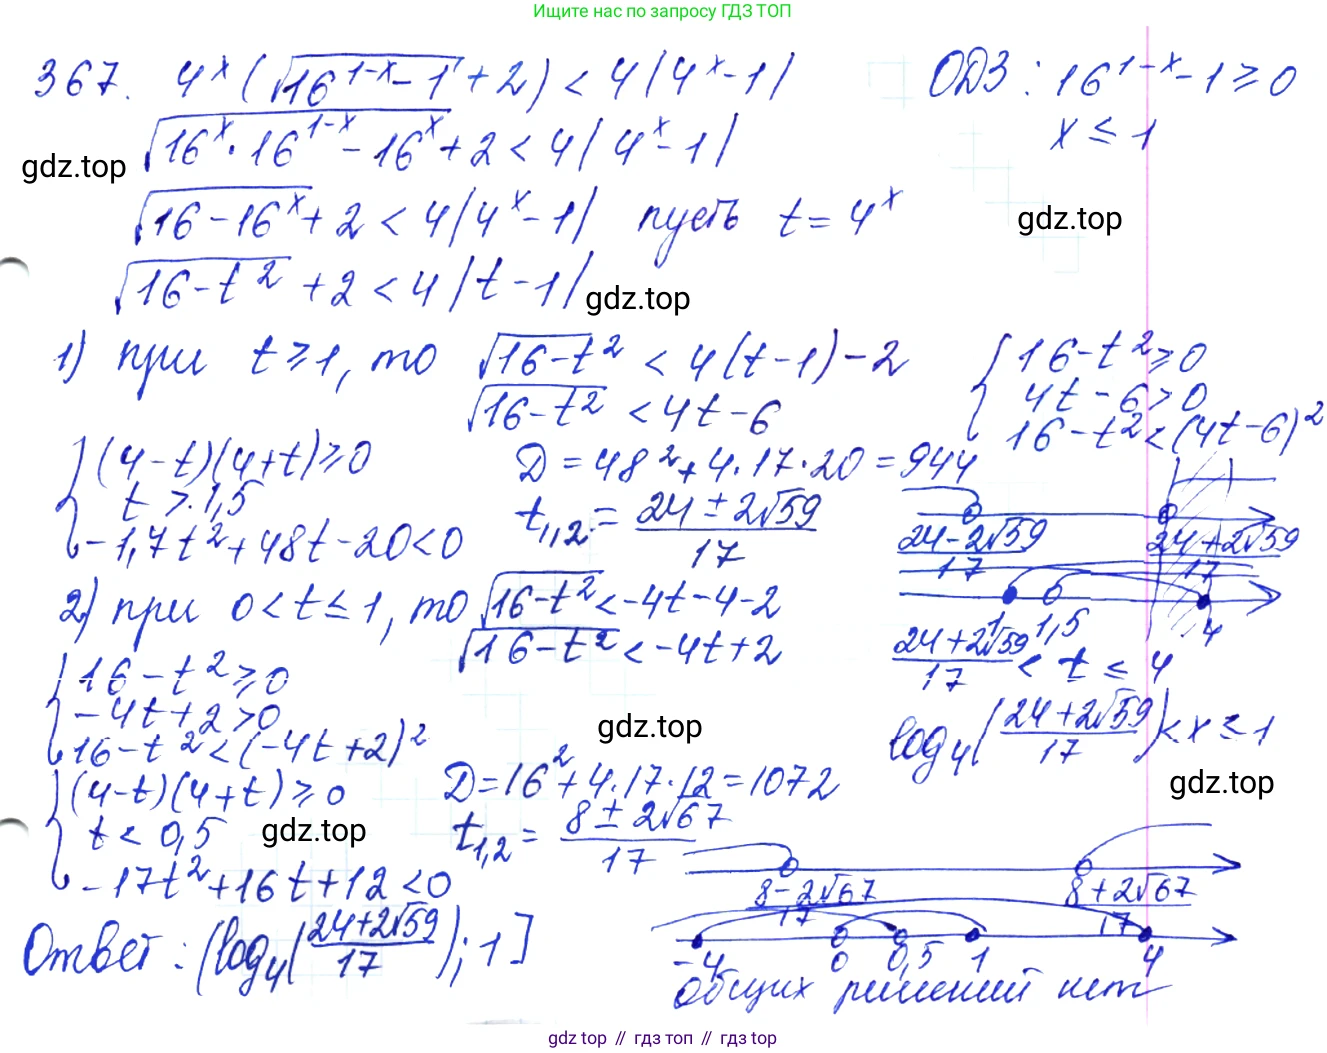 Ищите нас по запросу ГДЗ ТОП
367. 4^x (√(16^(1-x) - 1) + 2) < 4|4^x - 1|
ОДЗ: 16^(1-x) - 1 ≥ 0
√(16^x · 16^(1-x) - 16^x) + 2 < 4|4^x - 1|
x ≤ 1
gdz.top
√(16 - 16^x) + 2 < 4|4^x - 1| пусть t = 4^x
gdz.top
√(16 - t²) + 2 < 4|t - 1|
gdz.top
1) при t ≥ 1, то √(16 - t²) < 4(t - 1) - 2
√(16 - t²) < 4t - 6
{ 16 - t² ≥ 0
4t - 6 > 0
16 - t² < (4t - 6)²
{ (4 - t)(4 + t) ≥ 0
t > 1,5
-1,7t² + 48t - 20 < 0
D = 48² + 4·17·20 = 944
t₁,₂ = (24 ± 2√59)/17
(24 - 2√59)/17 (24 + 2√59)/17
1 1,5 4
(24 + 2√59)/17 < t ≤ 4
log₄((24 + 2√59)/17) < x ≤ 1
gdz.top
2) при 0 < t ≤ 1, то √(16 - t²) < -4t - 4 - 2
√(16 - t²) < -4t + 2
{ 16 - t² ≥ 0
-4t + 2 > 0
16 - t² < (-4t + 2)²
gdz.top
{ (4 - t)(4 + t) ≥ 0
t < 0,5
-17t² + 16t + 12 < 0
gdz.top
D = 16² + 4·17·12 = 1072
t₁,₂ = (8 ± 2√67)/17
(8 - 2√67)/17 (8 + 2√67)/17
-4 0 0,5 1 4
общих решений нет
Ответ: (log₄((24 + 2√59)/17); 1]
gdz top // гдз топ // gdz top